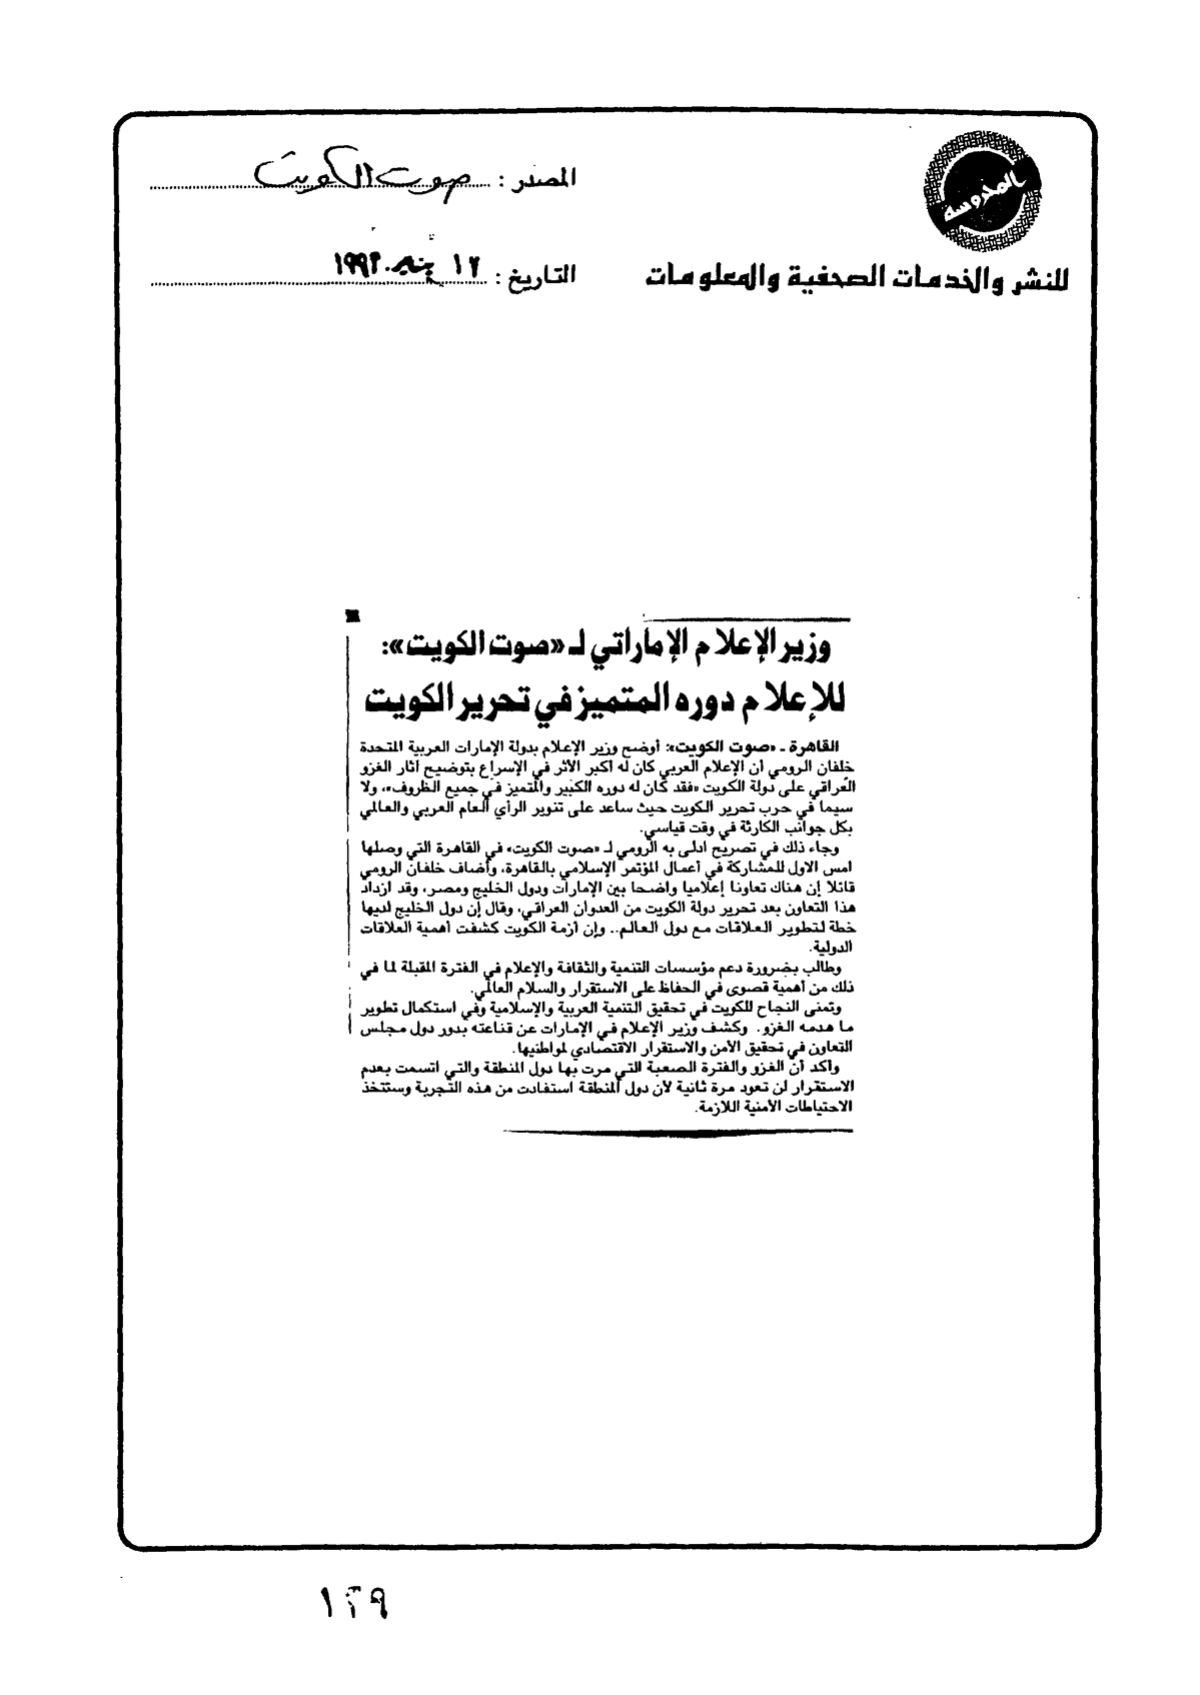 المحروسة
للنشر والخدمات الصحفية والمعلومات
المصدر : صوت الكويت
التاريخ : ١٢ يناير ١٩٩٢
وزير الإعلام الإماراتي لـ «صوت الكويت»:
للإعلام دوره المتميز في تحرير الكويت
القاهرة ـ «صوت الكويت»: أوضح وزير الإعلام بدولة الإمارات العربية المتحدة
خلفان الرومي أن الإعلام العربي كان له أكبر الأثر في الإسراع بتوضيح آثار الغزو
العراقي على دولة الكويت «فقد كان له دوره الكبير والمتميز في جميع الظروف»، ولا
سيما في حرب تحرير الكويت حيث ساعد على تنوير الرأي العام العربي والعالمي
بكل جوانب الكارثة في وقت قياسي.
وجاء ذلك في تصريح ادلى به الرومي لـ «صوت الكويت» في القاهرة التي وصلها
امس الاول للمشاركة في أعمال المؤتمر الإسلامي بالقاهرة، وأضاف خلفان الرومي
قائلا إن هناك تعاونا إعلاميا واضحا بين الإمارات ودول الخليج ومصر، وقد ازداد
هذا التعاون بعد تحرير دولة الكويت من العدوان العراقي، وقال إن دول الخليج لديها
خطة لتطوير العلاقات مع دول العالم.. وإن أزمة الكويت كشفت أهمية العلاقات
الدولية.
وطالب بضرورة دعم مؤسسات التنمية والثقافة والإعلام في الفترة المقبلة لما في
ذلك من أهمية قصوى في الحفاظ على الاستقرار والسلام العالمي.
وتمنى النجاح للكويت في تحقيق التنمية العربية والإسلامية وفي استكمال تطوير
ما هدمه الغزو. وكشف وزير الإعلام في الإمارات عن قناعته بدور دول مجلس
التعاون في تحقيق الأمن والاستقرار الاقتصادي لمواطنيها.
وأكد أن الغزو والفترة الصعبة التي مرت بها دول المنطقة والتي اتسمت بعدم
الاستقرار لن تعود مرة ثانية لأن دول المنطقة استفادت من هذه التجربة وستتخذ
الاحتياطات الأمنية اللازمة.
١٢٩